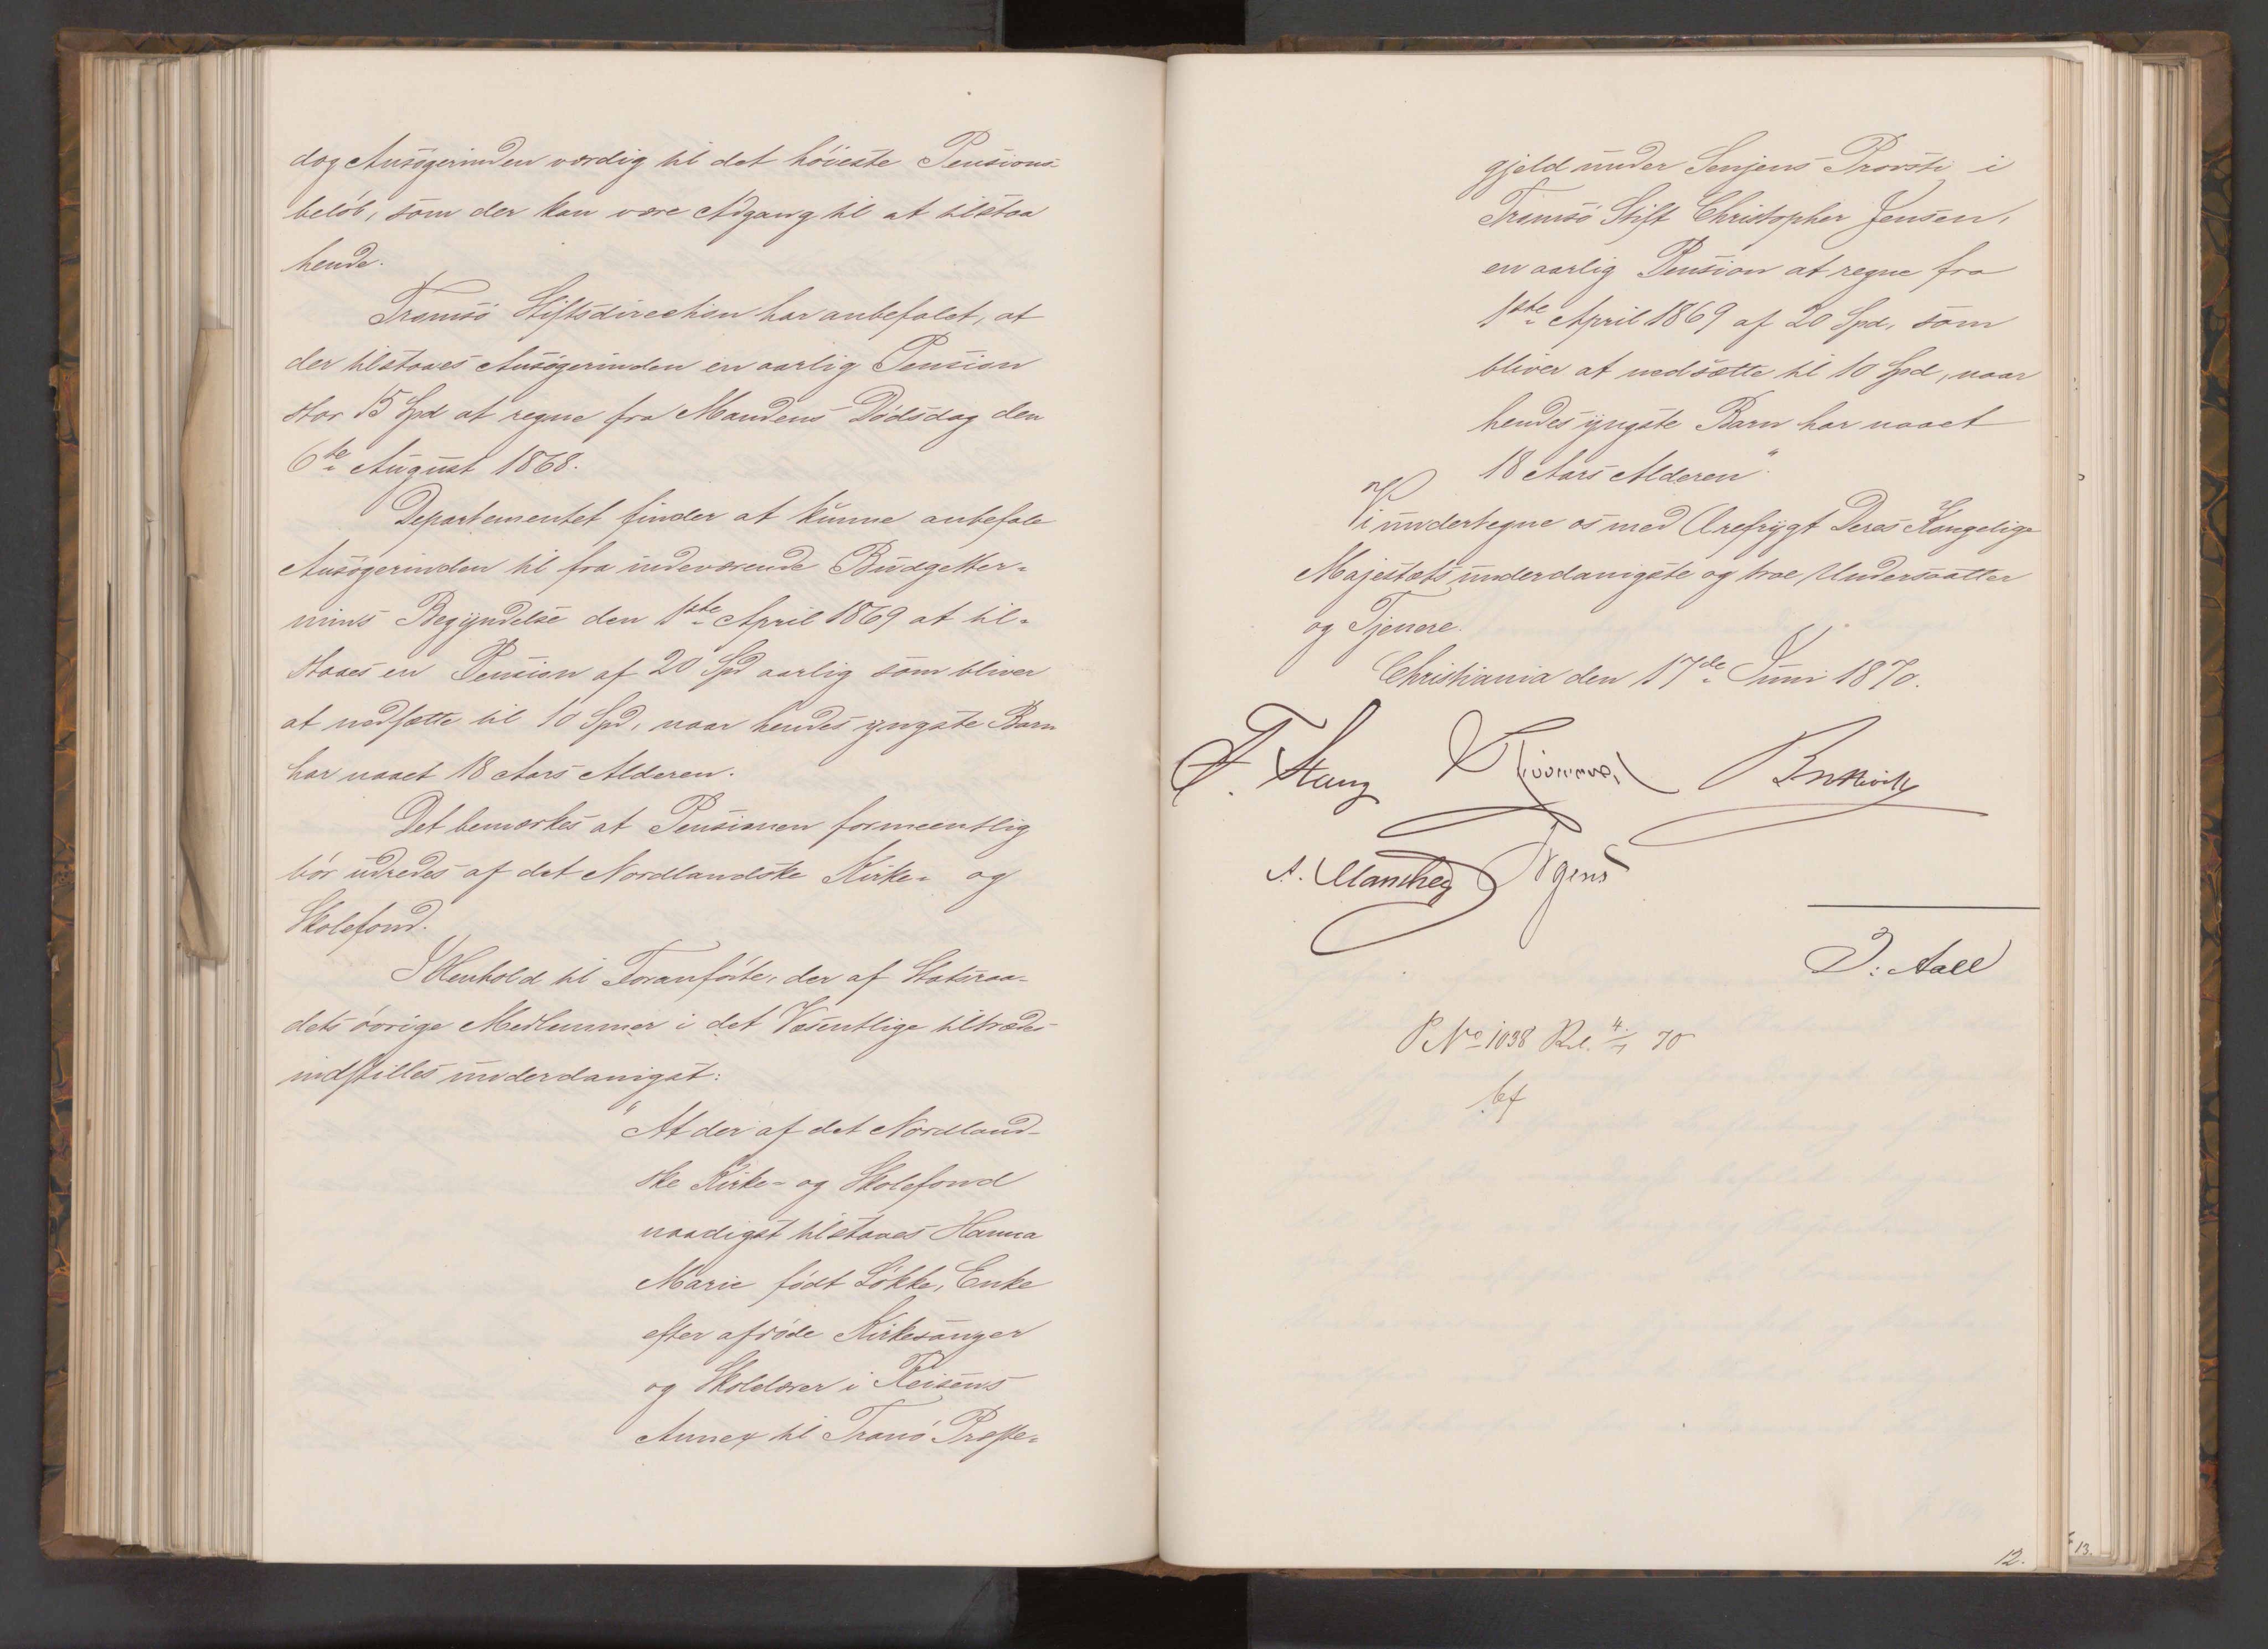 dog Ansögerinden værdig til det höieste Pensions-
belöb, som der kan være Adgang til at tilstaa
hende.
Tromsö Stiftsdirection har anbefalet, at
der tilstaaes Ansögerinden en aarlig Pension
stor 15 Spd at regne fra Mandens Dödsdag den
6te August 1868.
Departementet finder at kunne anbefale
Ansögerinden til fra indeværende Budgetter-
mins Begyndelse den 1ste April 1869 at til-
staaes en Pension af 20 Spd aarlig som bliver
at nedsætte til 10 Spd, naar hendes yngste Barn
har naaet 18 Aars Alderen.
Det bemærkes at Pensionen formeentlig
bör udredes af det Nordlandske Kirke- og
Skolefond.
I Henhold til Foranförte, der af Statsraa-
dets övrige Medlemmer i det Væsentlige tiltrædes
indstilles underdanigst:
"At der af det Nordland-
ske Kirke- og Skolefond
naadigst tilstaaes Hanna
Marie födt Lökke, Enke
efter afdöde Kirkesanger
og Skolelærer i Reisens
Annex til Tranö Præste-
gjeld under Senjens Provsti i
Tromsö Stift Christopher Jensen,
en aarlig Pension at regne fra
1ste April 1869 af 20 Spd, som
bliver at nedsætte til 10 Spd, naar
hendes yngste Barn har naaet
18 Aars Alderen".
Vi undertegne os med Ærefrygt Deres Kongelige
Majestæts underdanigste og troe Undersaatter
og Tjenere.
Christiania den 17de Juni 1870.
F. Stang
A. Manthey Irgens
J: Aall
P No 1038 4/7 70
12.
13.